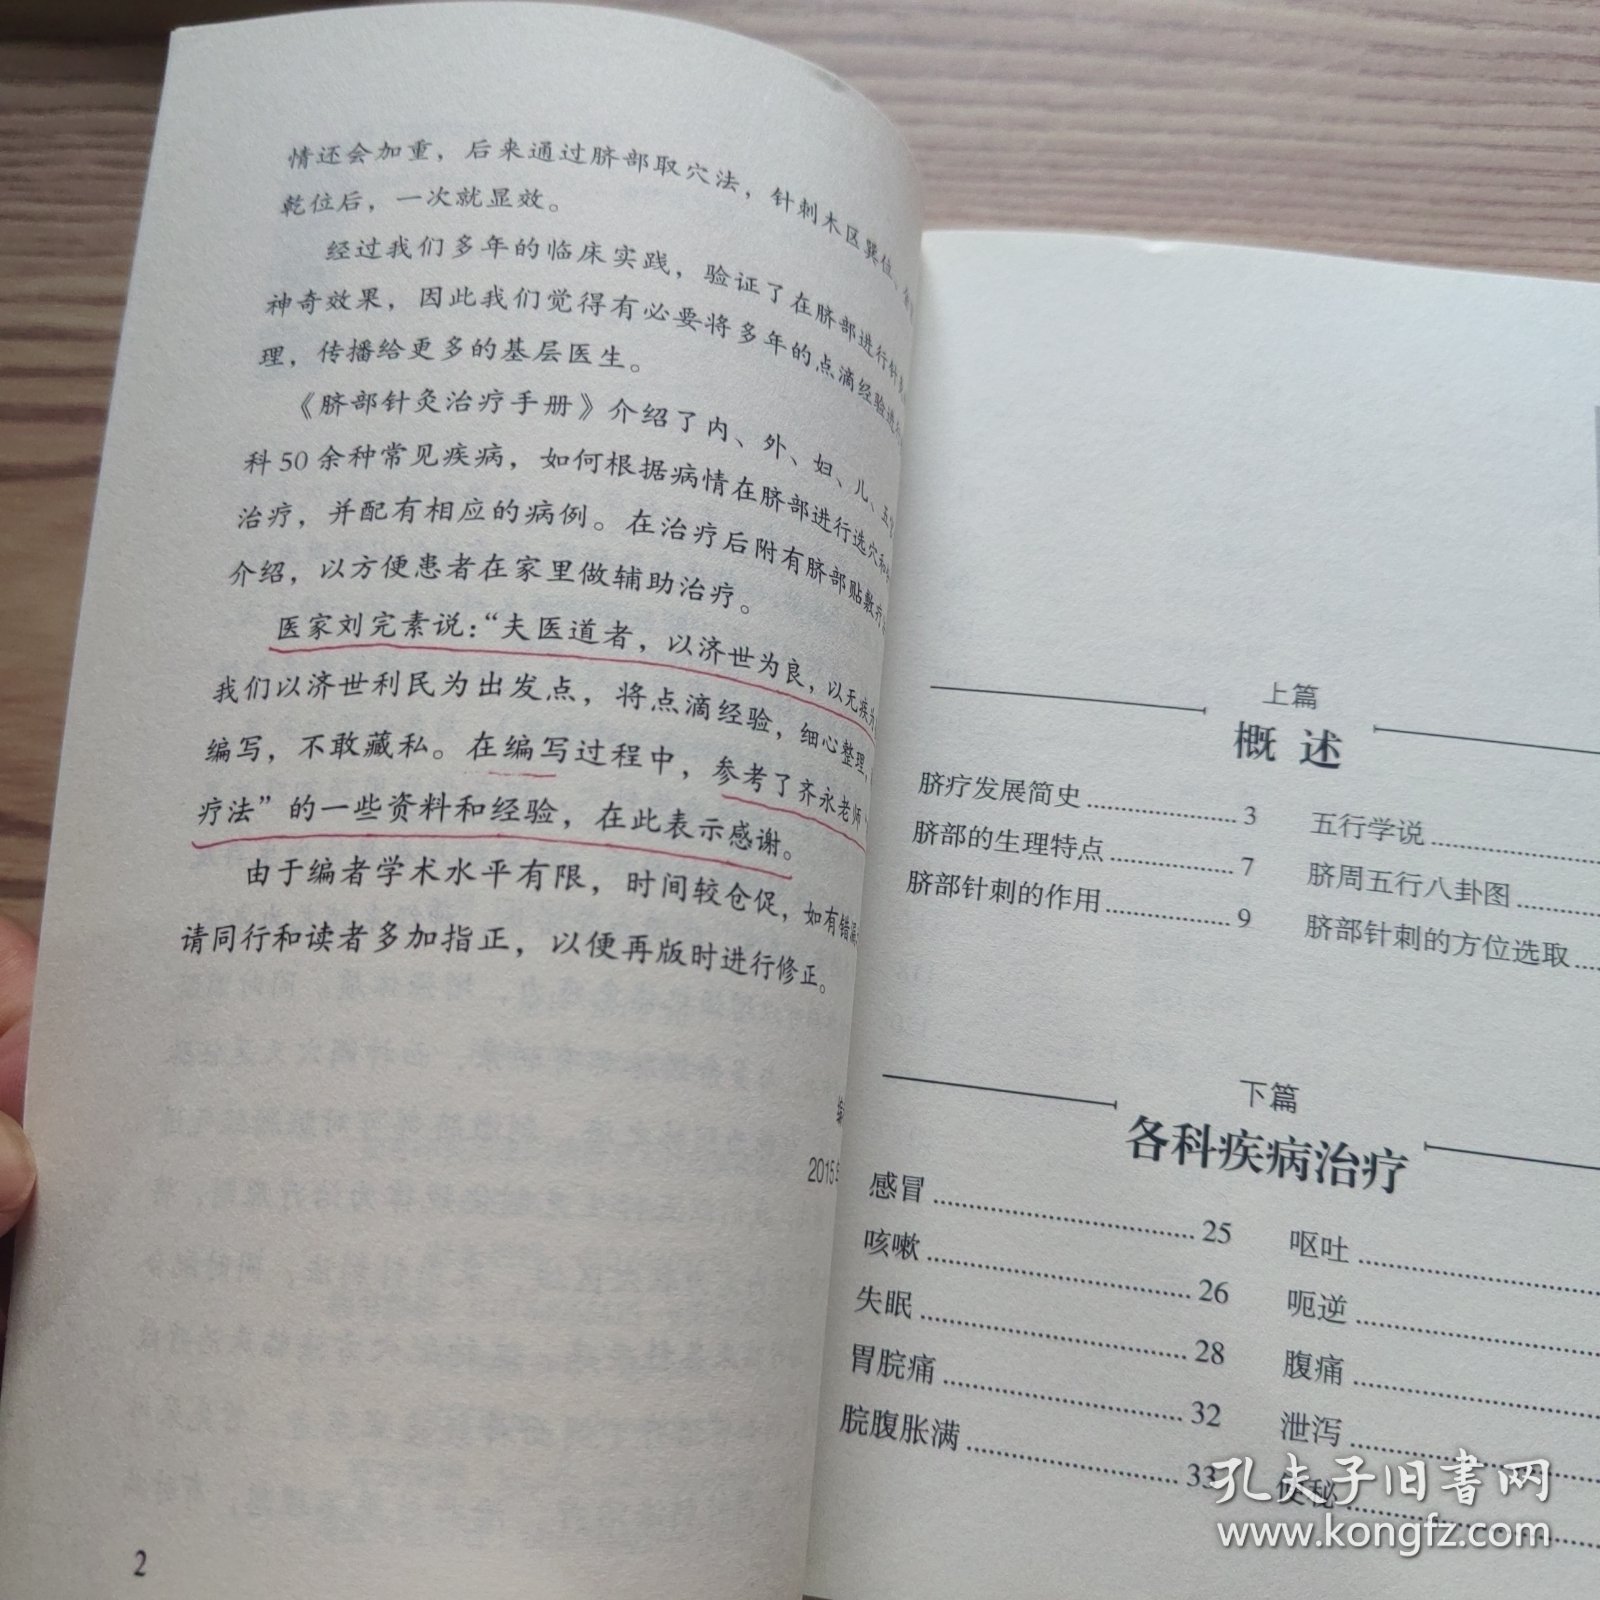 情还会加重，后来通过脐部取穴法，针刺木区巽位、
乾位后，一次就显效。
经过我们多年的临床实践，验证了在脐部进行针灸
神奇效果，因此我们觉得有必要将多年的点滴经验进行
理，传播给更多的基层医生。
《脐部针灸治疗手册》介绍了内、外、妇、儿、五官
科50余种常见疾病，如何根据病情在脐部进行选穴和
治疗，并配有相应的病例。在治疗后附有脐部贴敷疗
介绍，以方便患者在家里做辅助治疗。
医家刘完素说：“夫医道者，以济世为良，以无疾为
我们以济世利民为出发点，将点滴经验，细心整理，
编写，不敢藏私。在编写过程中，参考了齐永老师“
疗法”的一些资料和经验，在此表示感谢。
由于编者学术水平有限，时间较仓促，如有错漏
请同行和读者多加指正，以便再版时进行修正。
编
2015年
2
上篇
概 述
脐疗发展简史 3
脐部的生理特点 7
脐部针刺的作用 9
五行学说
脐周五行八卦图
脐部针刺的方位选取
下篇
各科疾病治疗
感冒 25
咳嗽 26
失眠 28
胃脘痛 32
脘腹胀满 33
呕吐
呃逆
腹痛
泄泻
便秘
孔夫子旧书网
www.kongfz.com